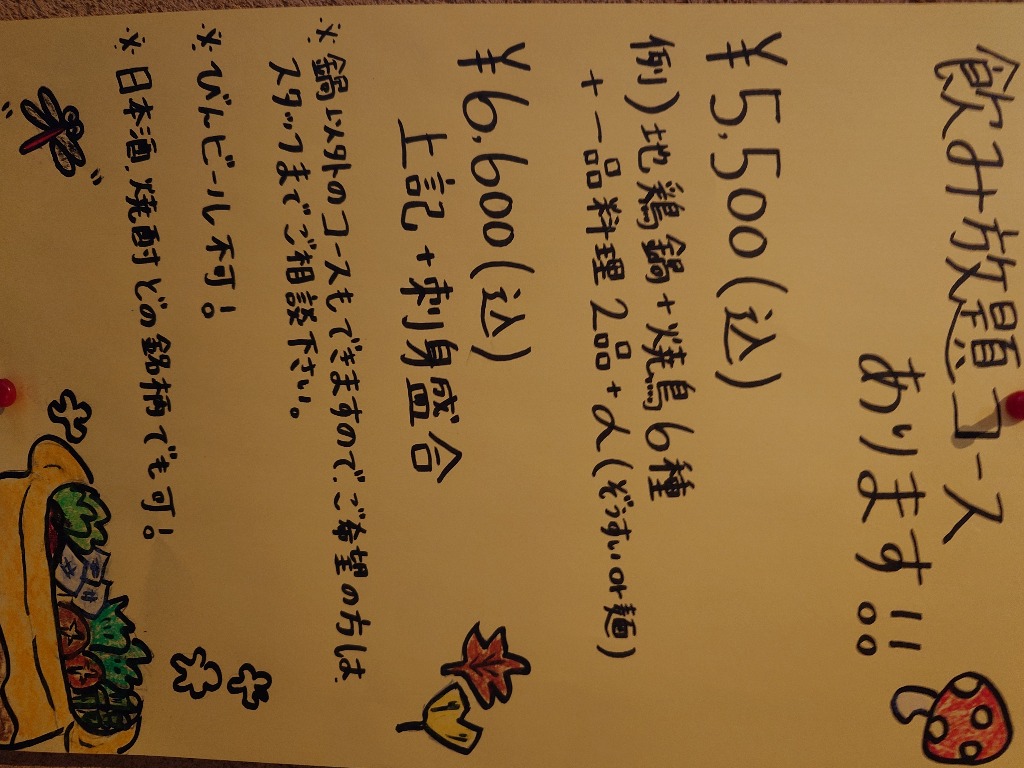 飲み放題コース
あります!!
¥5,500(込)
例)地鶏鍋+焼鳥6種
+一品料理2品+α(ぞうすいor麺)
¥6,600(込)
上記+刺身盛合
※鍋以外のコースもできますので、ご希望の方は
スタッフまでご相談下さい。
※びんビール不可!
※日本酒、焼酎どの銘柄でも可!